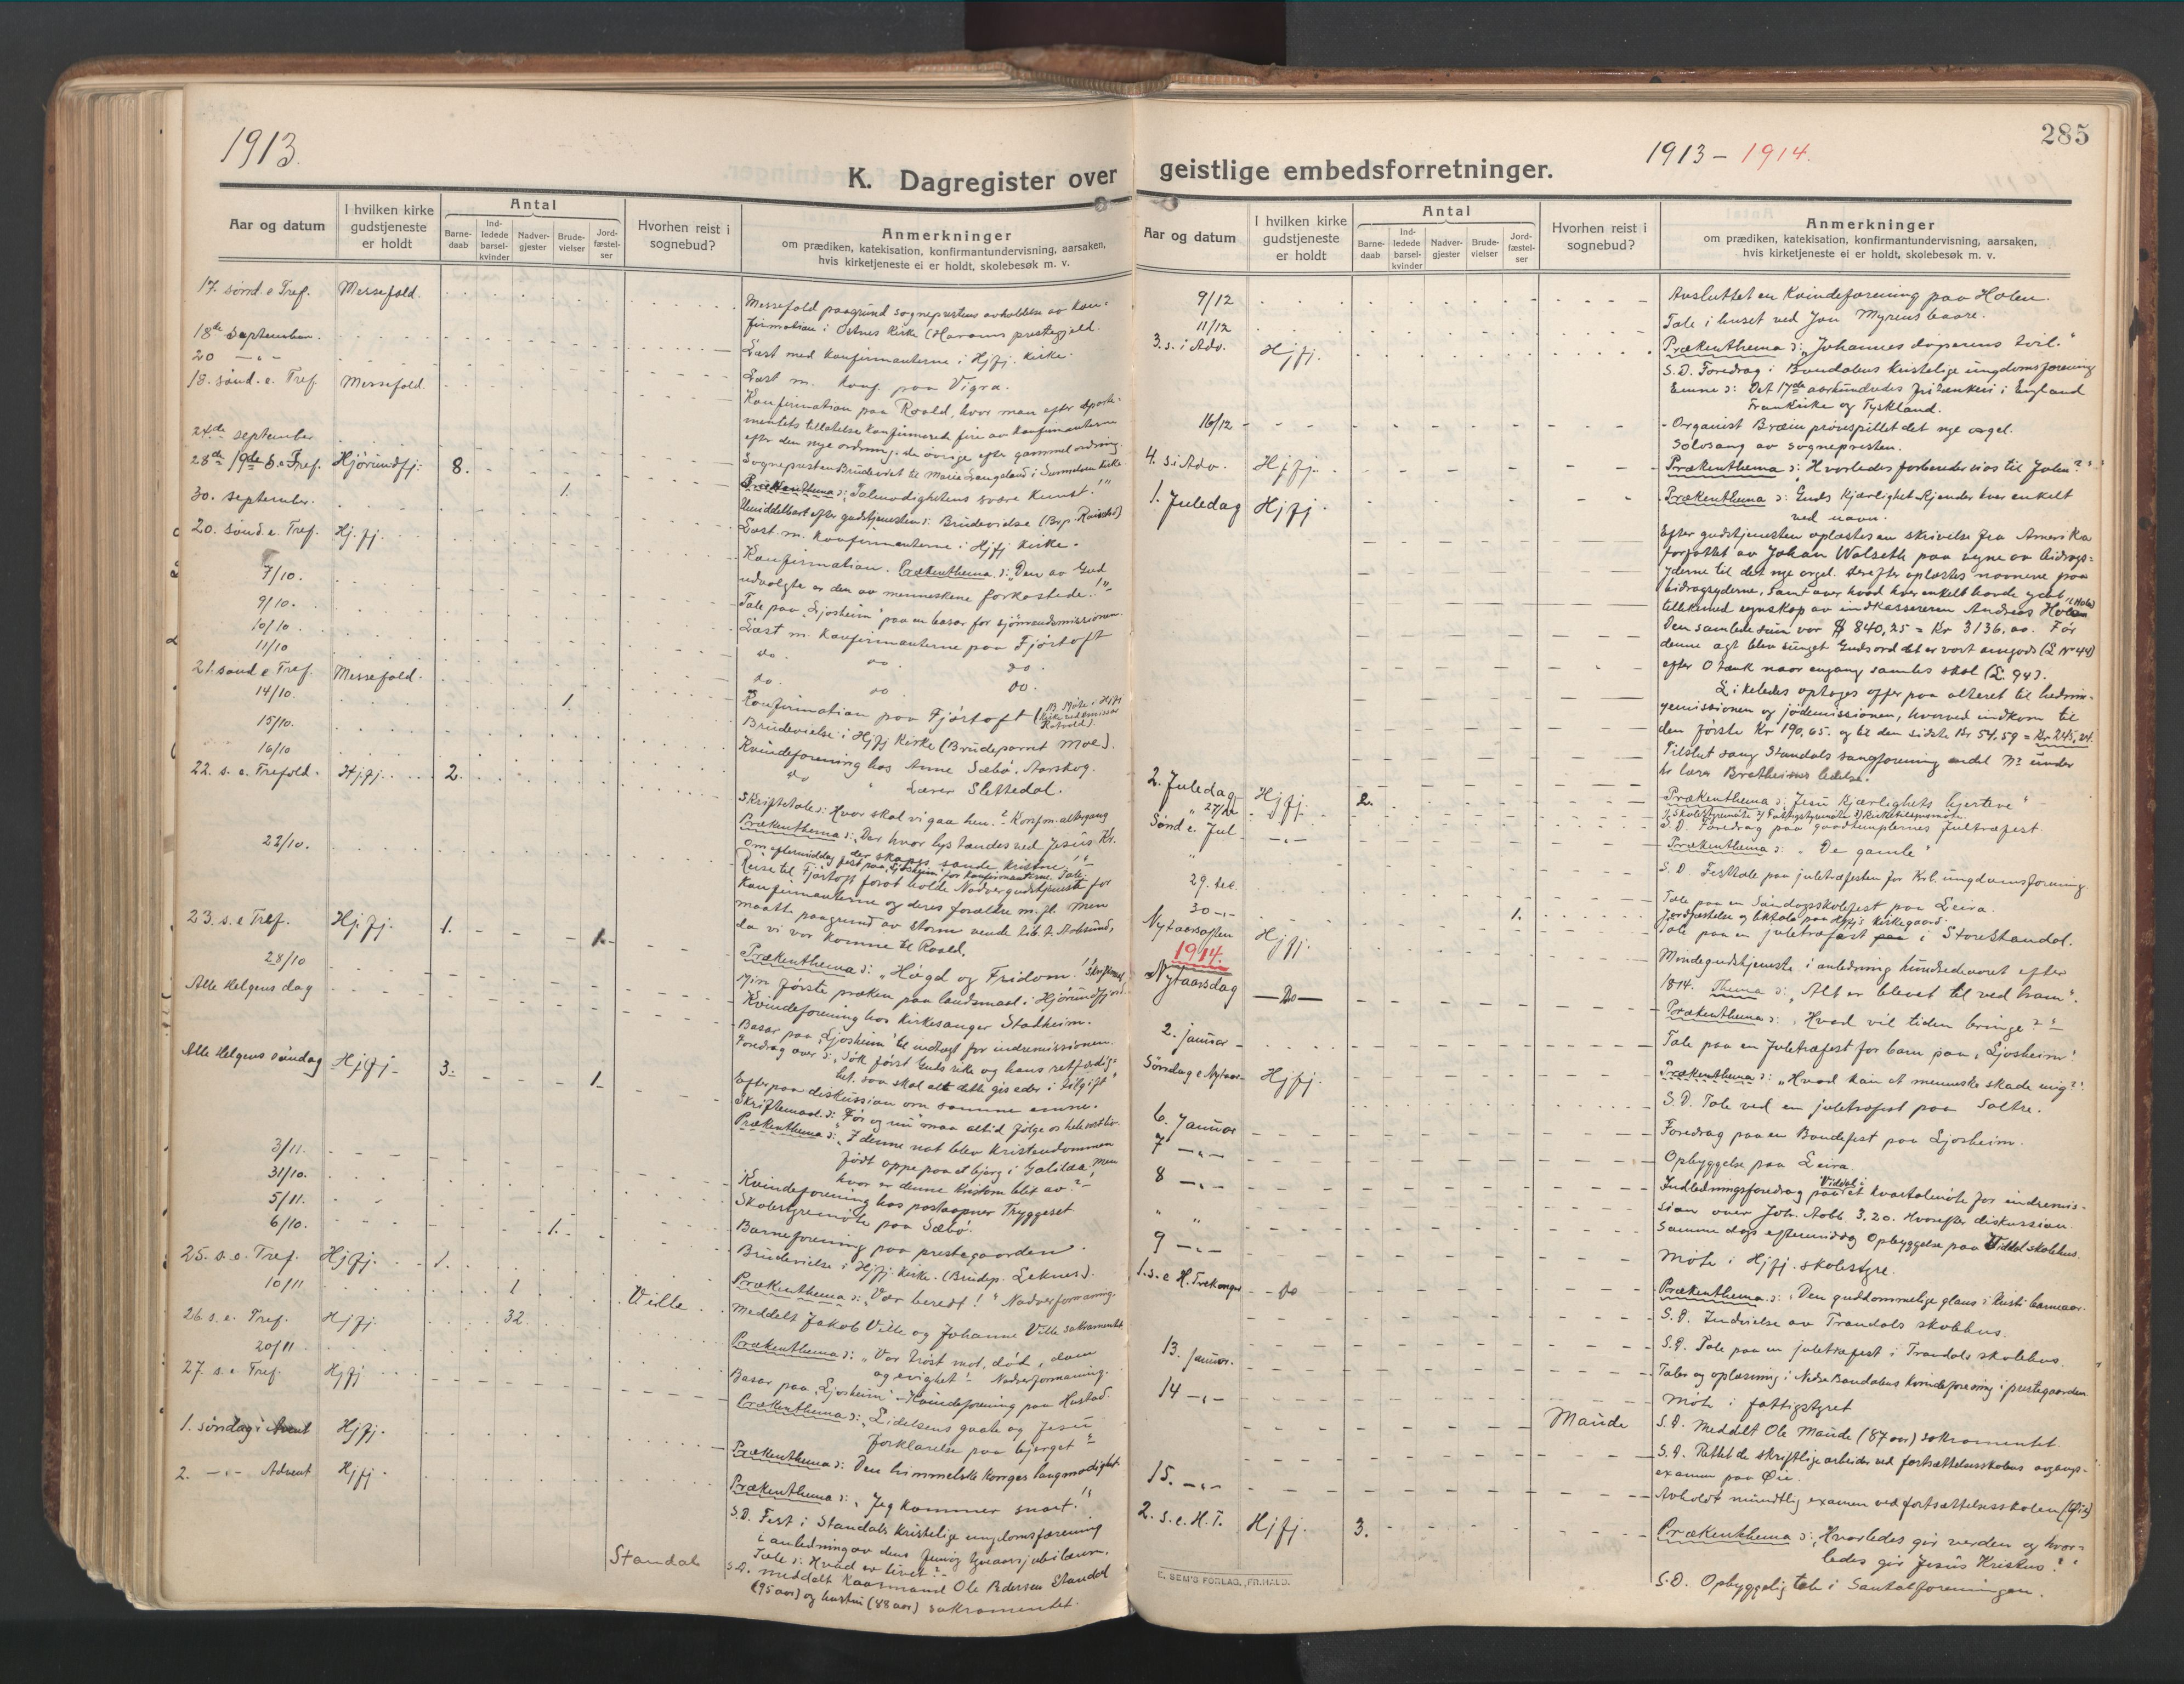 1913.
K. Dagregister over
Aar og datum
I hvilken kirke gudstjeneste er holdt
Antal
Barne-daab
Ind-ledede barsel-kvinder
Nadver-gjester
Brude-vielser
Jord-fæstel-ser
Hvorhen reist i sognebud?
Anmerkninger
om prædiken, katekisation, konfirmantundervisning, aarsaken,
hvis kirketjeneste ei er holdt, skolebesøk m. v.
17. sønd. e Tref. Messefald.
Messefald paagrund sognepræstens avholdelse av kon-
firmation i Østnes Kirke (Harams prestegjeld.
18de September.
Læst med konfirmanterne i Hjfj. Kirke.
20 -"-
Læst m. konf. paa Vigra.
18. sønd. e. Tref Messefald.
Konfirmation paa Roald, hvor man efter departe-
mentets tillatelse konfirmerede fire av konfirmanterne
efter den nye ordning, de øvrige efter gammel ordning.
24de september
28de 19de S. e. Tref. Hjørundfj. 8.
Prækenthema ɔ: "Talmodighetens svære kunst!"
1.
Umiddelbart efter gudstjenesten ɔ: Brudevielse
30. september.
Læst m. konfirmanterne i Hjfj Kirke.
20. sønd. e. Tref. Hj.fj.
Konfirmation. Prækenthema ɔ: "Den av Gud
udvalgte er den av menneskene forkastede!"
7/10.
Tale paa "Ljosheim" paa en basar for sjømandsmissionen.
9/10.
Læst m. konfirmanterne paa Fjørtoft
10/10
do. do. do.
11/10
do. do. do.
21. sønd e Tref. Messefald.
Konfirmation paa Fjørtoft
14/10. 1.
Brudevielse i Hjfj Kirke (Brudeparret Moe).
15/10.
Kvindeforening hos Anne Sæbø, Aarskog.
16/10
do " Lærer Slettedal.
22. s. e. Trefold. Hjfj. 2.
Skriftetale ɔ: Hvor skal vi gaa hen? Konfm. altergang
Prækenthema ɔ: "Der hvor lys tændes ved Jesus Kr.
der skapes sande kristne!"
Om eftermiddag fest paa "Ljosheim" for konfirmanterne. Tale.
22/10.
Reise til Fjørtoft forat holde Nadvergudstjeneste for
Konfirmanterne og deres forældre m. fl. Men
maatte paagrund av storm vende
da vi var komne til Roald.
23. s. e Tref. Hj.fj. 1. 1.
Prækenthema ɔ: "Høgd og Fridom!"
Min første præken paa landsmaal i Hjørundfjord.
28/10
Kvindeforening hos Kirkesanger Stadheim.
Alle Helgens dag
Basar paa "Ljosheim" til indtægt for indremissionen.
Foredrag over ɔ: "Søk først Guds rike og hans retfærdig-
het, saa skal alt dette gis eder i tilgift"
Efterpaa diskussion om samme emne.
Alle Helgens søndag Hjfj. 3. 1
Skriftemaal. ɔ: "Før og nu" maa altid følge os hele vort liv.
Prækenthema ɔ: "I denne nat blev Kristendommen
født oppe paa et bjerg i Galilæa! Men
hvor er denne Kristom blet av?"
3/11.
Kvindeforening hos postaapner Tryggeset
31/10.
Skolestyremøte paa Sæbø.
5/11.
Barneforening paa prestegaarden.
6/10. 1.
Brudevielse i Hjfj. Kirke. (Brudep. Leknes).
25. s. e. Tref. Hjfj. 1.
Prækenthema ɔ: "Vær beredt!" Nadverformaning.
10/11 1 Ville
Meddelt Jakob Ville og Johanne Ville sakramentet.
26 s. e. Tref. Hjfj. 32.
Prækenthema ɔ: "Vor trøst mot død, dom
og evighet!" Nadverformaning.
20/11
Basar paa "Ljosheim" - Kvindeforening paa Hustad.
27. s. e Tref. Hjfj
Prækenthema ɔ: "Lidelsens gaate og Jesu
forklarelse paa bjerget"
1. søndag i Avent Hjfj.
Prækenthema ɔ: Den himmelske Konges langmodighet
2. -"- Advent Hjfj.
Prækenthema ɔ: "Jeg kommer snart!"
S.D. Fest i Standals Kristelige ungdomsforening
i anledning av dens
Tale ɔ: Hvad er livet?"
Standal
S.D. meddelt Kaarmand Ole Pedersen Standal
(95 aar) og hustru (88 aar) sakramentet.
285
1913 - 1914.
geistlige embedsforretninger.
Aar og datum
I hvilken kirke gudstjeneste er holdt
Antal
Barne-daab
Ind-ledede barsel-kvinder
Nadver-gjester
Brude-vielser
Jord-fæstel-ser
Hvorhen reist i sognebud?
Anmerkninger
om prædiken, katekisation, konfirmantundervisning, aarsaken,
hvis kirketjeneste ei er holdt, skolebesøk m. v.
9/12
Avsluttet en Kvindeforening paa Holen.
11/12
Tale i huset ved Jon Myrens baare.
3. s. i Adv. Hjfj.
Prækenthema ɔ: "Johannes døperens tvil."
S.D. Foredrag i Bondalens kristelige ungdomsforening
Emne ɔ: Det 17de aarhundredes fritænkeri i England
Frankrike og Tyskland.
16/12
Organist Bræin prøvespillet det nye orgel.
Solosang av sognepresten.
4. s. i Adv. Hjfj.
Prækenthema ɔ: Hvorledes forbereder vi os til Julen?"
1. Juledag Hjfj.
Prækenthema ɔ: Guds Kjærlighet kjender hver enkelt
ved navn.
Efter gudstjenesten oplæstes en skrivelse fra Amerika
forfattet av Johan Walseth paa vegne av bidrags-
yderne til det nye orgel. Derefter oplæstes navnene paa
bidragsyderne, samt over hvad hver enkelt havde ydet
tillikemed regnskap av indkassereren Andreas Holen
Den samlede sum var $ 840,25 = Kr 3136,00. Før
denne agt blev sunget Guds ord det er vort arvegods (L Nr 44)
efter O tænk naar engang samles skal (L. 94).
Likeledes optoges offer paa alteret til hednin-
gemissionen og jødemissionen, hvorved indkom til
den første Kr 190,65. og til den sidste Kr 54.59 = Kr 245,24.
Tilslut sang Standals sangforening endel Nr under
hr lærer Brethei ledelse.
2. Juledag Hjfj. 2.
Prækenthema ɔ: Jesu Kjærlighets hjerteve"
" 27/12
S.D. Foredrag paa goodtemplernes juletræfest.
Sønd e. Jul -"-
Prækenthema ɔ: "De gamle"
"
S.D. Festtale paa juletræfesten for Krl. ungdomsforening.
29. dec.
Tale paa en Søndagsskolefest paa Leira.
30 -"- 1.
Jordfæstelse og liktale paa Hjfj's Kirkegaard.
Tale paa en juletræfest i Storestandal.
Nytaarsaften Hjfj.
Mindegudstjeneste i anledning hundredeaaret efter
1814. Thema ɔ: "Alt er blevet til ved ham".
1914.
Nytaarsdag - Do -
Prækenthema ɔ: "Hvad vil tiden bringe?"
2. januar
Tale paa en Juletræfest for barn paa "Ljosheim"
Søndag e Nytaar Hjfj.
Prækenthema ɔ: "Hvad kan et menneske skade mig?"
S.D. Tale ved en juletræfest paa Sæltre.
6. Januar
Foredrag paa en Bondefest paa Ljosheim.
7 -"-
Opbyggelse paa Leira.
8 -"-
Indledningsforedrag paa et kvartalmøte for indremis-
Viddal i
sion over Joh. Aab. 3.20. Hvorefter diskussion.
" "
Samme dags eftermiddag Opbyggelse paa Viddal skolehus.
9 -"-
Møte i Hjfj. skolestyre.
1. s. e H. Trekonger Do
Prækenthema. ɔ: "Den guddommelige glans i Kristi barneaar.
S.D. Indvielse av Trandals skolehus.
S.D. Tale paa en juletræfest i Trandals skolehus.
13. januar.
Tale og oplæsning i Nedre Bondalens kvindeforening i prestegaarden
14 -"-
Møte i fattigstyret
Maude
S.D. Meddelt Ole Maude (87 aar) sakramentet.
S.D. Rettet de skriftlige arbeider ved fortsættelsesskolens avgangs-
examen paa Øie.
15. -"-
Avholdt mundtlig examen ved fortsættelsesskolen (Øie)
2. s. e. H. T. Hjfj. 3.
Prækenthema ɔ: "Hvorledes gir verden og hvor-
ledes gir Jesus Kristus?"
S.D. Opbyggelig tale i Santalforeningen.
E. SEM'S FORLAG, FR.HALD.